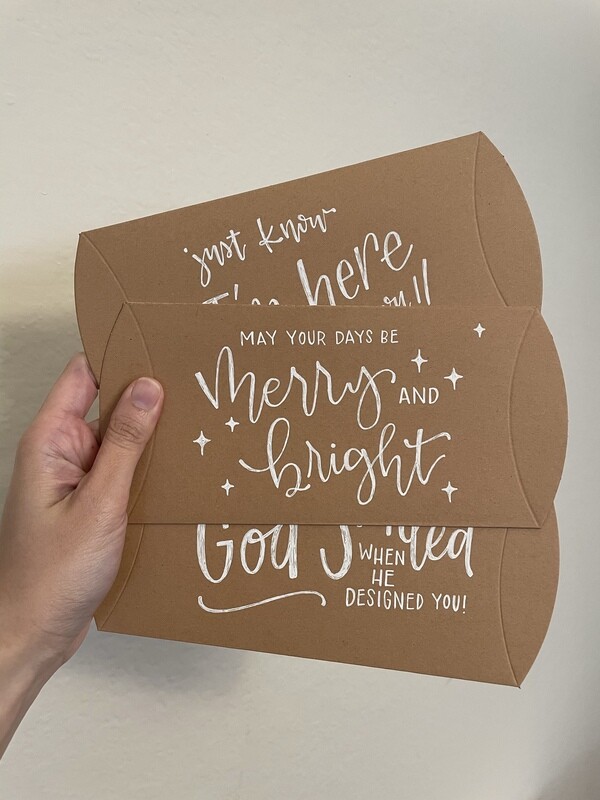 just know
I'm here
MAY YOUR DAYS BE
Merry AND
bright
God Smiled
WHEN
HE
DESIGNED YOU!